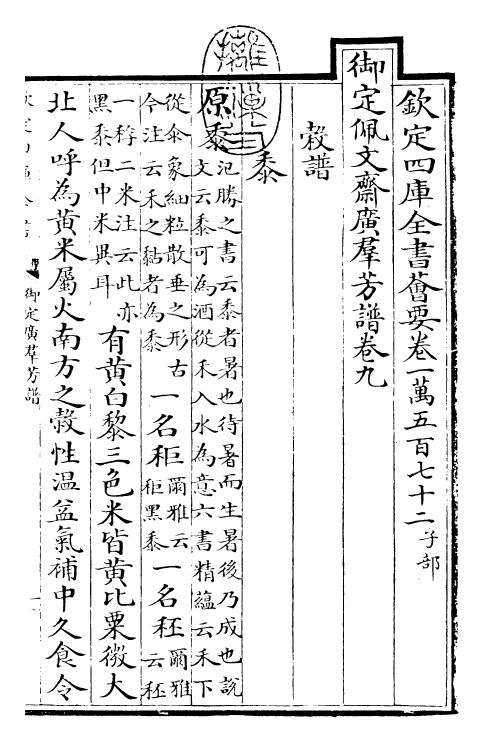 欽定四庫全書薈要卷一萬五百七十二子部
御定佩文齋廣羣芳譜卷九
穀譜
黍
原黍氾勝之書云黍者暑也待暑而生暑後乃成也說
文云黍可為酒從禾入水為意六書精蘊云禾下
從氽象細粒散垂之形古
今注云禾之黏者為黍
一名秬爾雅云
秬黑黍
一名秠爾雅
云秠
一稃二米注云此亦
黑黍但中米異耳
有黄白黎三色米皆黄比粟微大
北人呼為黄米屬火南方之穀性温益氣補中久食令
御定廣羣芳譜